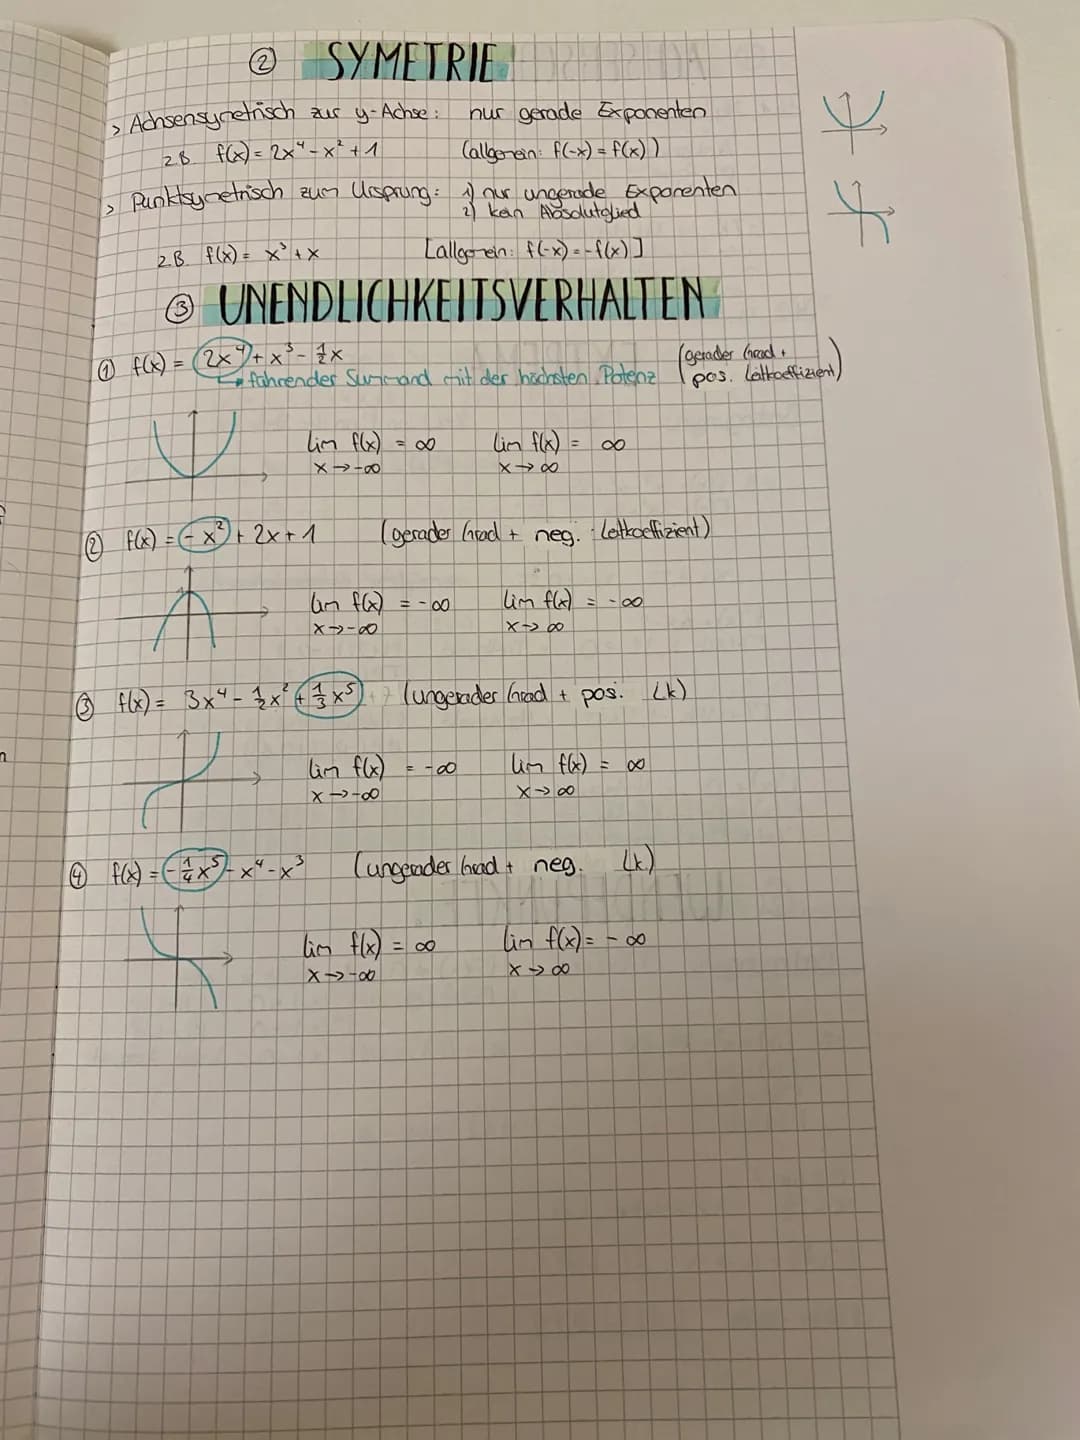 ② SYMETRIE
> Achsensymetrisch zur y-Achse: nur gerade Exponenten
z.B. f(x) = 2x⁴ - x² + 1 (allgemein: f(-x) = f(x))
> Punktsymetrisch zum Ursprung: 1) nur ungerade Exponenten
2) kein Absolutglied
z.B. f(x) = x³ + x [allgemein: f(-x) = -f(x)]
③ UNENDLICHKEITSVERHALTEN
① f(x) = 2x⁴ + x³ - ½x (gerader Grad +
führender Summand mit der höchsten Potenz pos. Leitkoeffizient)
lim f(x) = ∞ lim f(x) = ∞
x → -∞ x → ∞
② f(x) = -x² + 2x + 1 (gerader Grad + neg. Leitkoeffizient)
lim f(x) = -∞ lim f(x) = -∞
x → -∞ x → ∞
③ f(x) = 3x⁴ - ½x² + ⅓x⁵ (ungerader Grad + pos. Lk)
lim f(x) = -∞ lim f(x) = ∞
x → -∞ x → ∞
④ f(x) = -¼x⁵ - x⁴ - x³ (ungerader Grad + neg. Lk)
lim f(x) = ∞ lim f(x) = -∞
x → -∞ x → ∞